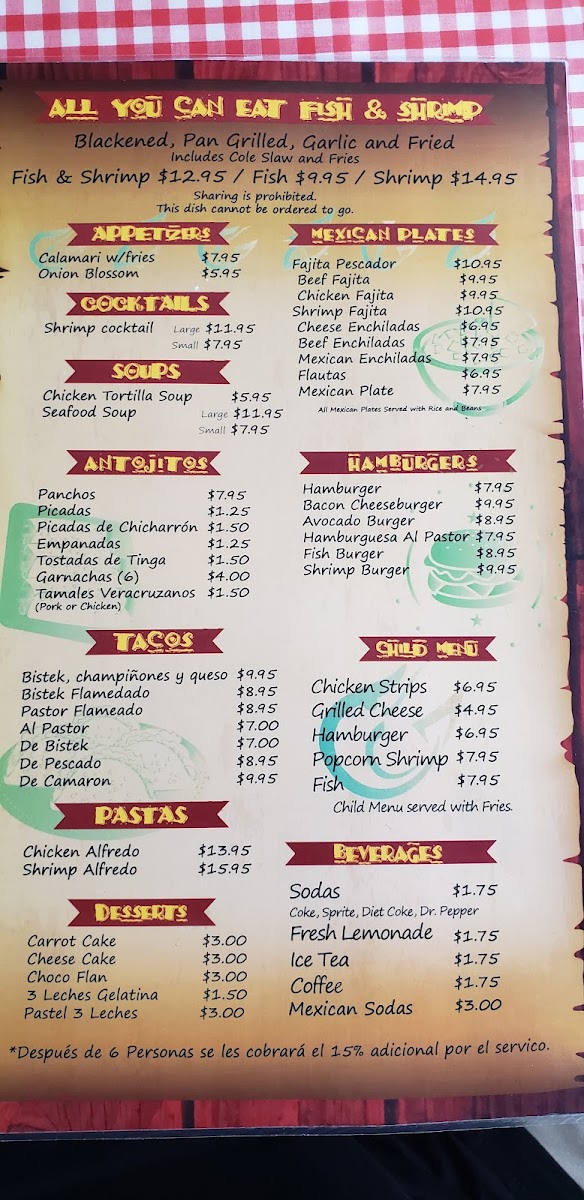 ALL YOU CAN EAT FISH & SHRIMP
Blackened, Pan Grilled, Garlic and Fried
Includes Cole Slaw and Fries
Fish & Shrimp $12.95 / Fish $9.95 / Shrimp $14.95
Sharing is prohibited.
This dish cannot be ordered to go.
APPETIZERS
Calamari w/fries $7.95
Onion Blossom $5.95
COCKTAILS
Shrimp cocktail Large $11.95
Small $7.95
SOUPS
Chicken Tortilla Soup $5.95
Seafood Soup Large $11.95
Small $7.95
ANTOJITOS
Panchos $7.95
Picadas $1.25
Picadas de Chicharrón $1.50
Empanadas $1.25
Tostadas de Tinga $1.50
Garnachas (6) $4.00
Tamales Veracruzanos $1.50
(Pork or Chicken)
TACOS
Bistek, champiñones y queso $9.95
Bistek Flamedado $8.95
Pastor Flameado $8.95
Al Pastor $7.00
De Bistek $7.00
De Pescado $8.95
De Camaron $9.95
PASTAS
Chicken Alfredo $13.95
Shrimp Alfredo $15.95
DESSERTS
Carrot Cake $3.00
Cheese Cake $3.00
Choco Flan $3.00
3 Leches Gelatina $1.50
Pastel 3 Leches $3.00
MEXICAN PLATES
Fajita Pescador $10.95
Beef Fajita $9.95
Chicken Fajita $9.95
Shrimp Fajita $10.95
Cheese Enchiladas $6.95
Beef Enchiladas $7.95
Mexican Enchiladas $7.95
Flautas $6.95
Mexican Plate $7.95
All Mexican Plates Served with Rice and Beans
HAMBURGERS
Hamburger $7.95
Bacon Cheeseburger $9.95
Avocado Burger $8.95
Hamburguesa Al Pastor $7.95
Fish Burger $8.95
Shrimp Burger $9.95
CHILD MENU
Chicken Strips $6.95
Grilled Cheese $4.95
Hamburger $6.95
Popcorn Shrimp $7.95
Fish $7.95
Child Menu served with Fries.
BEVERAGES
Sodas $1.75
Coke, Sprite, Diet Coke, Dr. Pepper
Fresh Lemonade $1.75
Ice Tea $1.75
Coffee $1.75
Mexican Sodas $3.00
*Después de 6 Personas se les cobrará el 15% adicional por el servico.